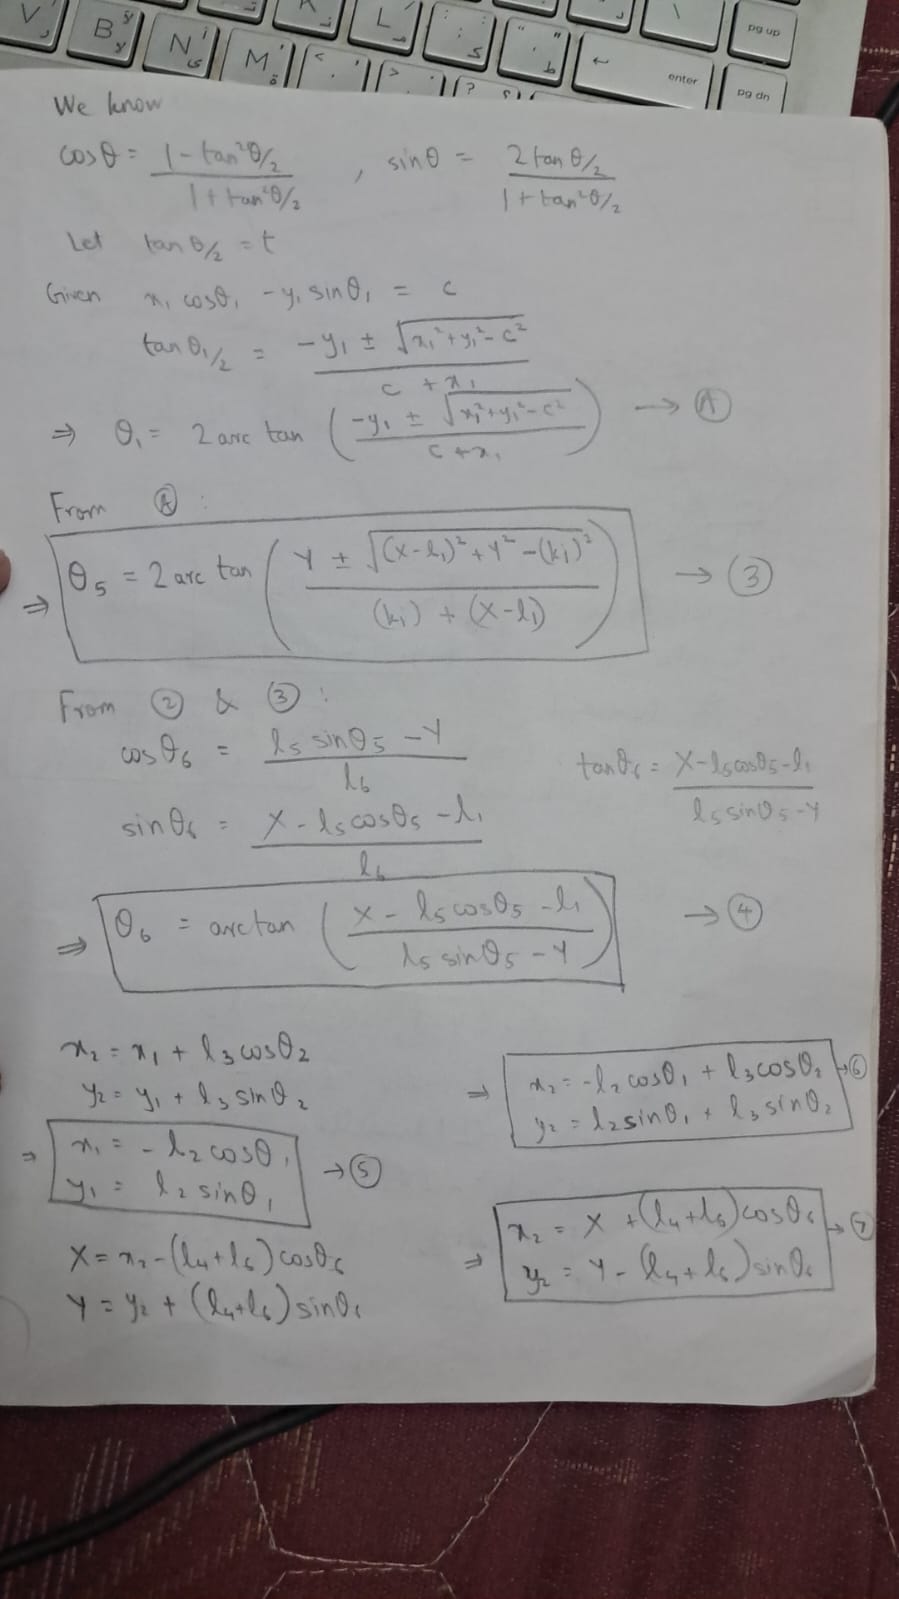 V
B
N
M
K
L
<
>
?
enter
pg up
pg dn
We know
cosθ = (1 - tan²θ/2) / (1 + tan²θ/2) , sinθ = (2 tan θ/2) / (1 + tan²θ/2)
Let tan θ/2 = t
Given x₁ cosθ₁ - y₁ sinθ₁ = c
tan θ₁/2 = (-y₁ ± √(x₁² + y₁² - c²)) / (c + x₁)
⇒ θ₁ = 2 arc tan ((-y₁ ± √(x₁² + y₁² - c²)) / (c + x₁)) → Ⓐ
From Ⓐ :
⇒ θ₅ = 2 arc tan ((Y ± √((X - l₁)² + Y² - (k₁)²)) / ((k₁) + (X - l₁))) → ③
From ② & ③ :
cosθ₆ = (l₅ sinθ₅ - Y) / l₆
tanθ₆ = (X - l₅cosθ₅ - l₁) / (l₅ sinθ₅ - Y)
sinθ₆ = (X - l₅cosθ₅ - l₁) / l₆
⇒ θ₆ = arctan ((X - l₅cosθ₅ - l₁) / (l₅ sinθ₅ - Y)) → ④
x₂ = x₁ + l₃cosθ₂
y₂ = y₁ + l₃ sinθ₂
⇒ x₁ = - l₂cosθ₁
y₁ = l₂ sinθ₁ → ⑤
⇒ x₂ = -l₂cosθ₁ + l₃cosθ₂ → ⑥
y₂ = l₂sinθ₁ + l₃ sinθ₂
X = x₂ - (l₄+l₆) cosθ₆
Y = y₂ + (l₄+l₆) sinθ₆
⇒ x₂ = X + (l₄+l₆)cosθ₆ → ⑦
y₂ = Y - (l₄+l₆)sinθ₆